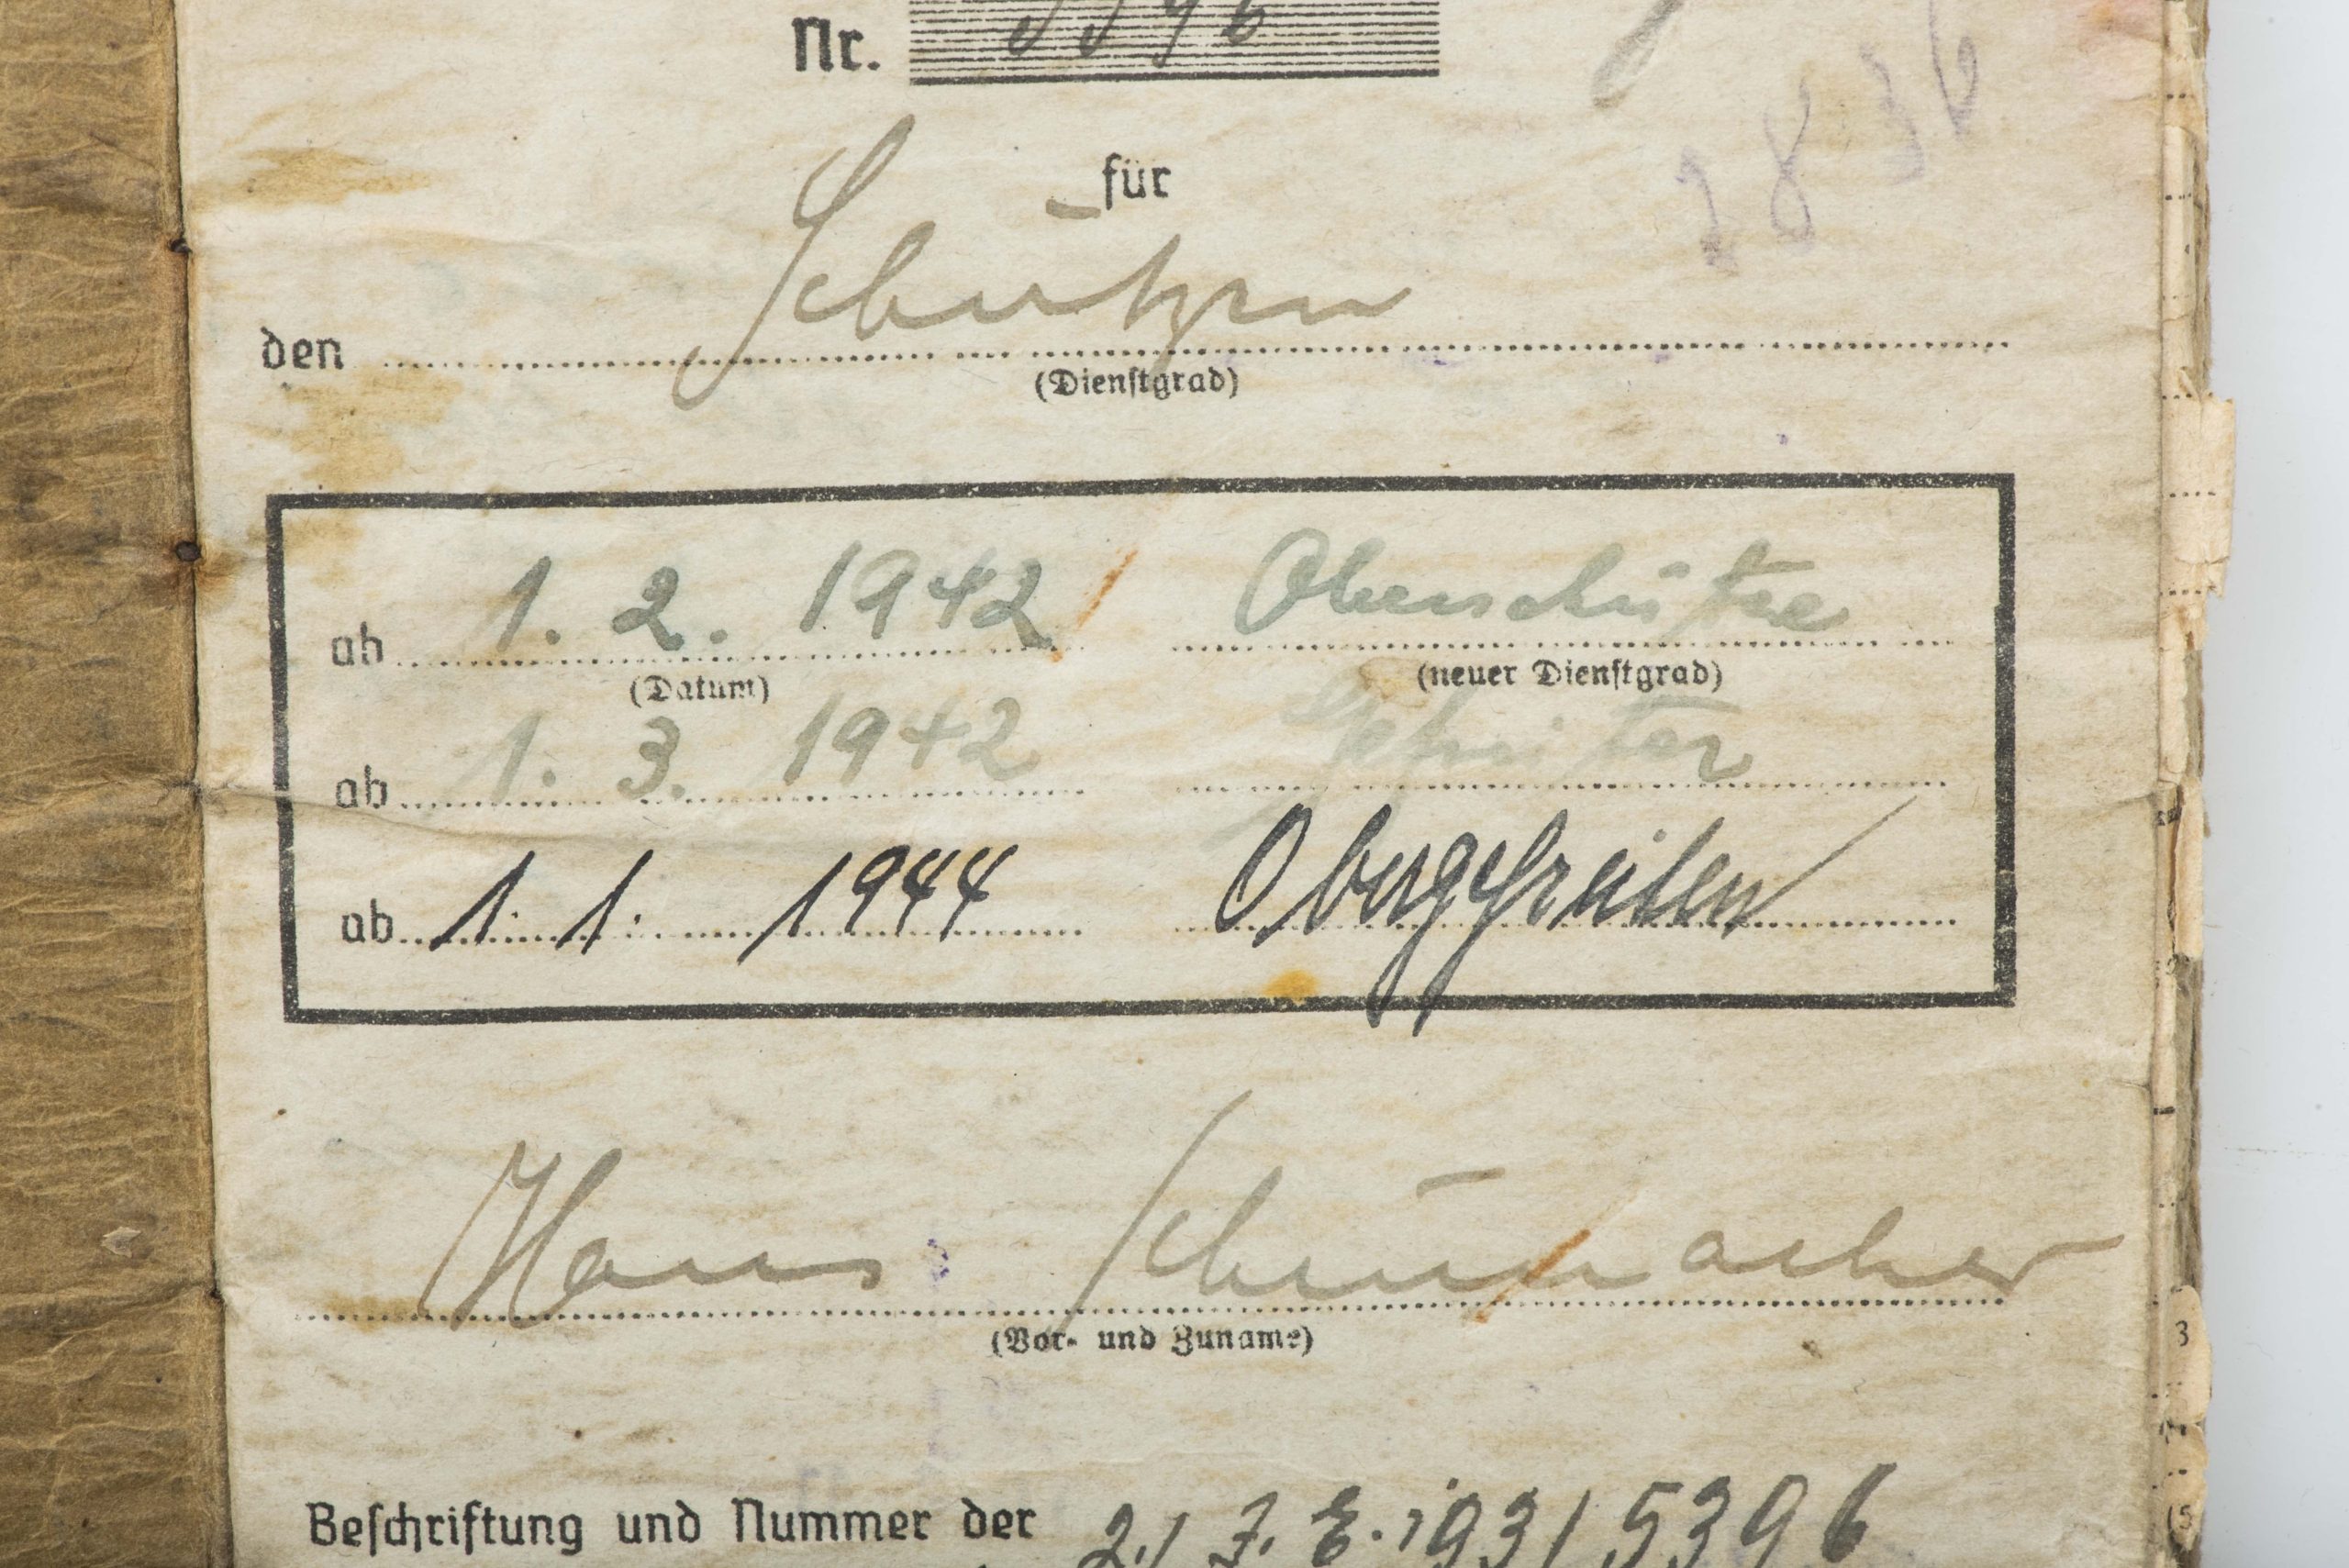 Nr. 5396
2836
für
den Schützen
(Dienstgrad)
ab 1. 2. 1942 Oberschütze
(Datum) (neuer Dienstgrad)
ab 1. 3. 1942 Gefreiter
ab 1. 1. 1944 Obergefreiten
Hans Schumacher
(Vor- und Zuname)
Beschriftung und Nummer der 2./ J. E. 193 / 5396